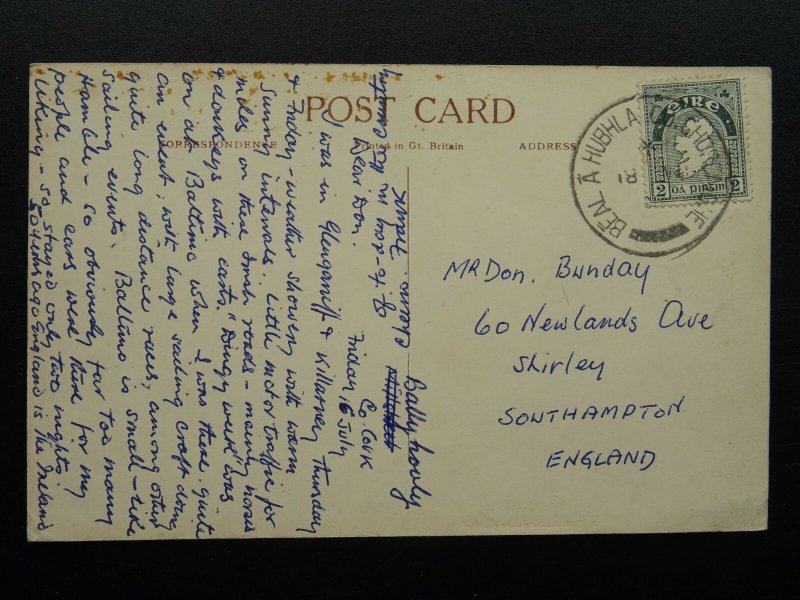 POST CARD
CORRESPONDENCE
Printed in Gt. Britain
ADDRESS
EIRE
2 DÁ PINGIN 2
BÉAL Á HUBHLA
18
Ballyhowly
Co. Cork
Friday 16 July
Dear Don.
I was in Glengariff & Killarney Thursday
& Friday - weather showery with warm
sunny intervals. Little motor traffic for
miles on these Irish roads - mainly horses
& donkeys with carts. "Dingy week" was
on at Baltimo when I was there. quite
an event, with large sailing craft doing
quite long distance races, among other
sailing events. Baltimo is small - like
Hamble - so obviously far too many
people and cars were there for my
liking - so stayed only two nights.
50 years ago England is the Ireland
simple
MR Don. Bunday
60 Newlands Ave
Shirley
SOUTHAMPTON
ENGLAND